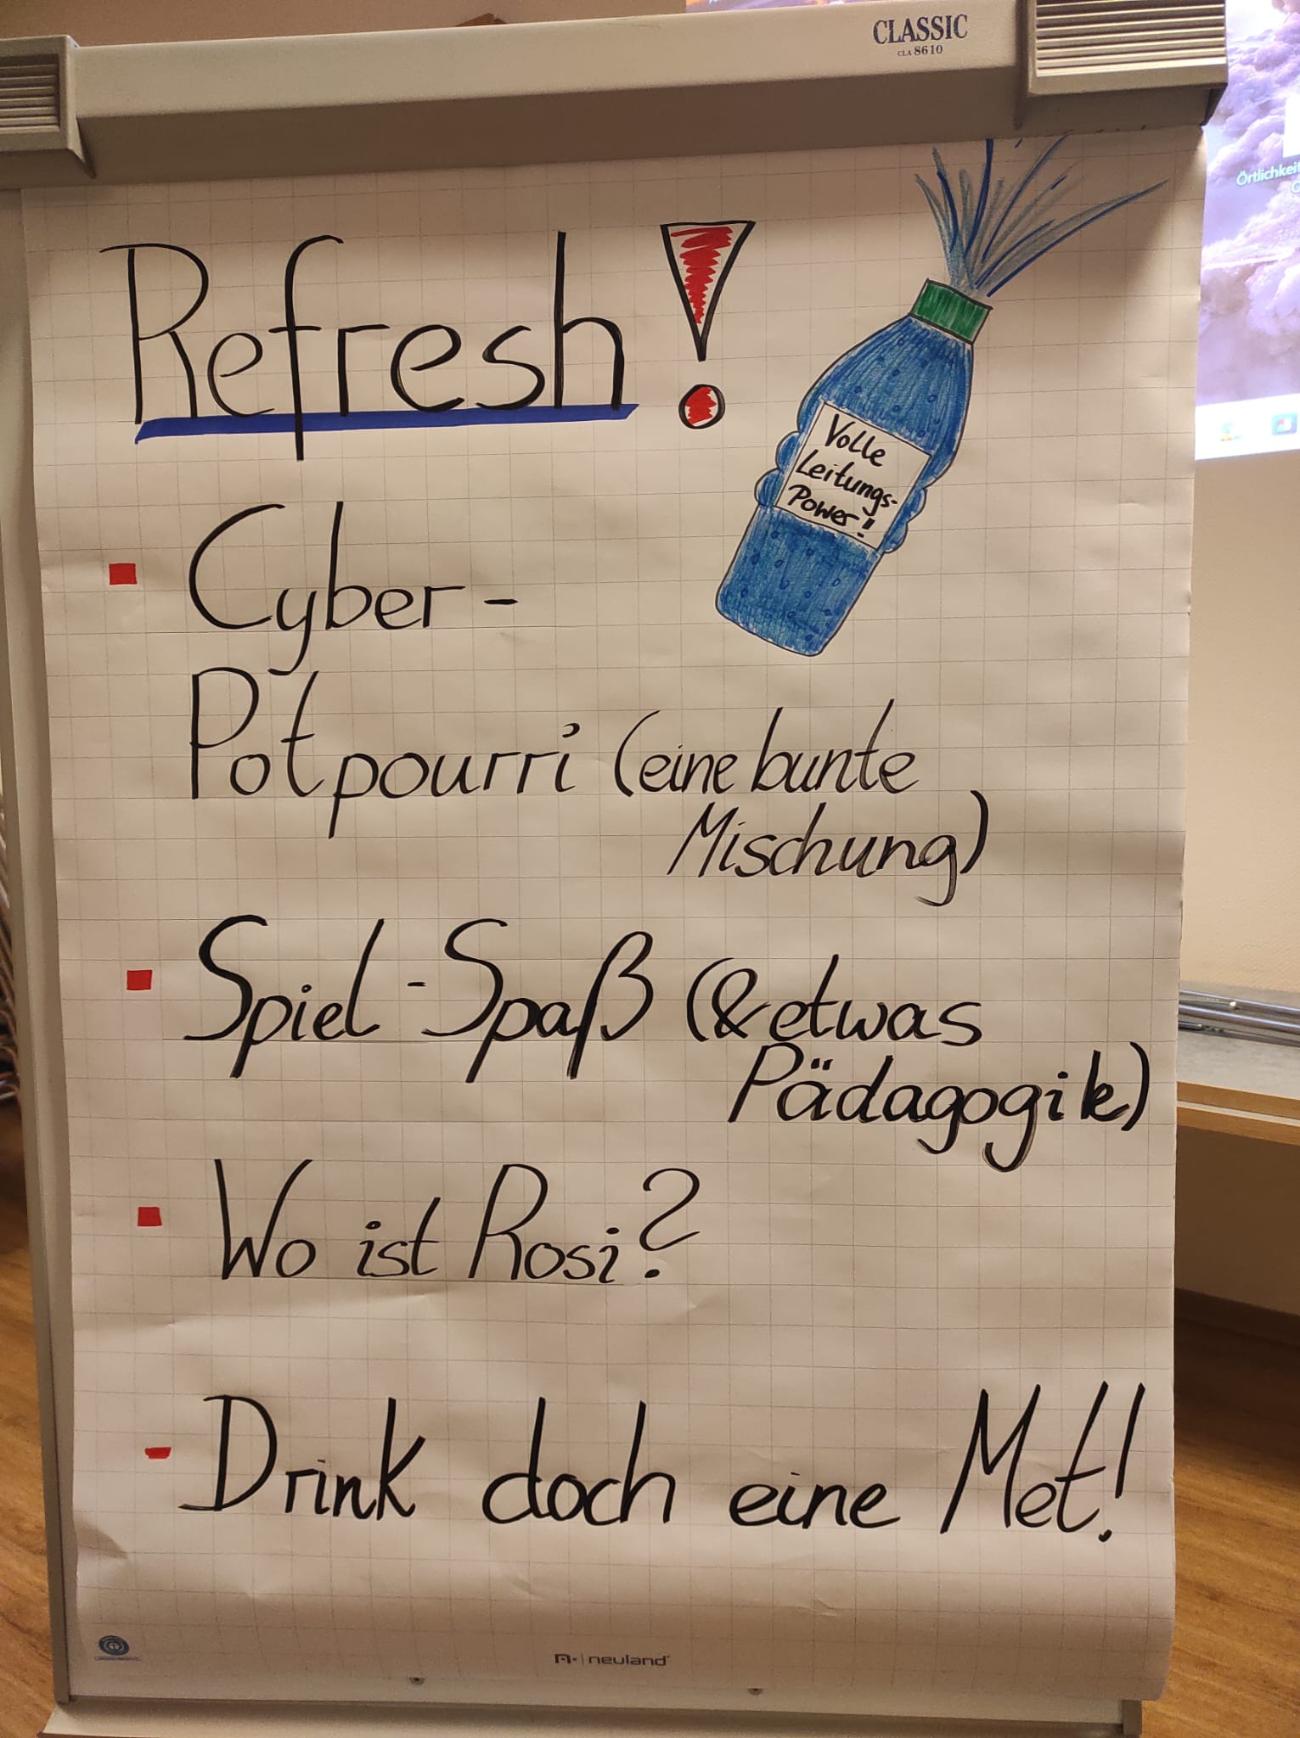 CLASSIC
CLA 8610
Örtlichkeit
Refresh!
Volle
Leitungs-
Power!!
Cyber-
Potpourri (eine bunte
Mischung)
Spiel-Spaß (& etwas
Pädagogik)
Wo ist Rosi?
Drink doch eine Met!
neuland